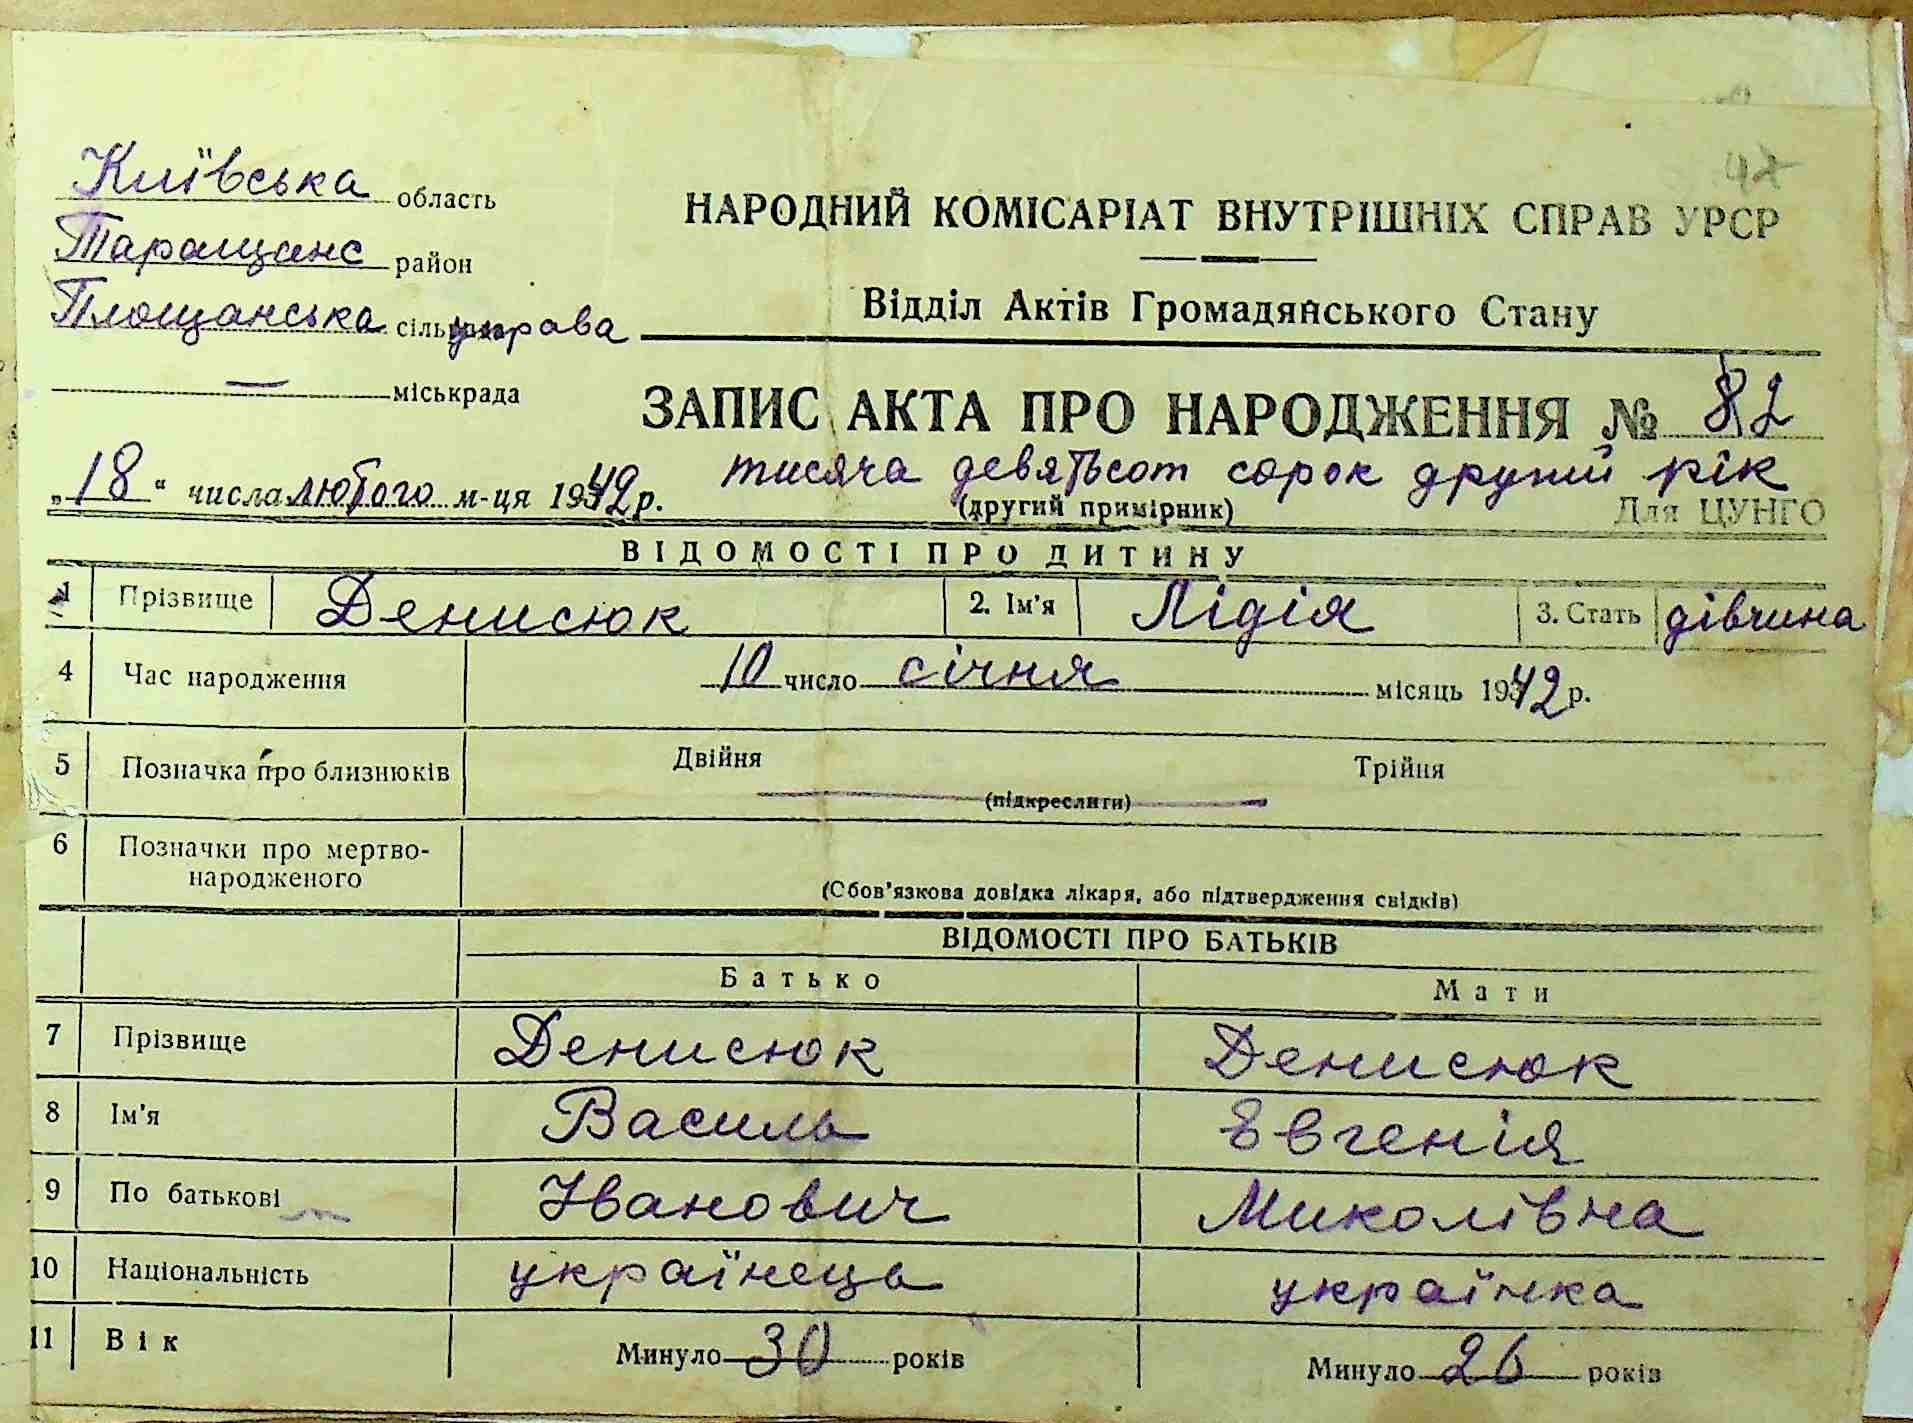 Київська область
Таращанс район
Площанська сільуправа
міськрада
47
НАРОДНИЙ КОМІСАРІАТ ВНУТРІШНІХ СПРАВ УРСР
Відділ Актів Громадянського Стану
ЗАПИС АКТА ПРО НАРОДЖЕННЯ № 82
„18“ числа лютого м-ця 1942р. тисяча девятьсот сорок другий рік
(другий примірник) Для ЦУНГО
ВІДОМОСТІ ПРО ДИТИНУ
1 Прізвище Денисюк 2. Ім'я Лідія 3. Стать дівчина
4 Час народження 10 число січня місяць 1942р.
5 Позначка про близнюків Двійня Трійня
(підкреслити)
6 Позначки про мертво-
народженого
(Сбов'язкова довідка лікаря, або підтвердження свідків)
ВІДОМОСТІ ПРО БАТЬКІВ
Батько Мати
7 Прізвище Денисюк Денисюк
8 Ім'я Василь Евгенія
9 По батькові Іванович Миколівна
10 Національність українець українка
11 Вік Минуло 30 років Минуло 26 років